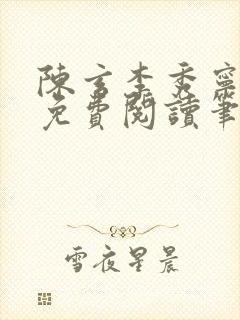 陳玄李秀寧
免費閱讀筆
雪夜星晨